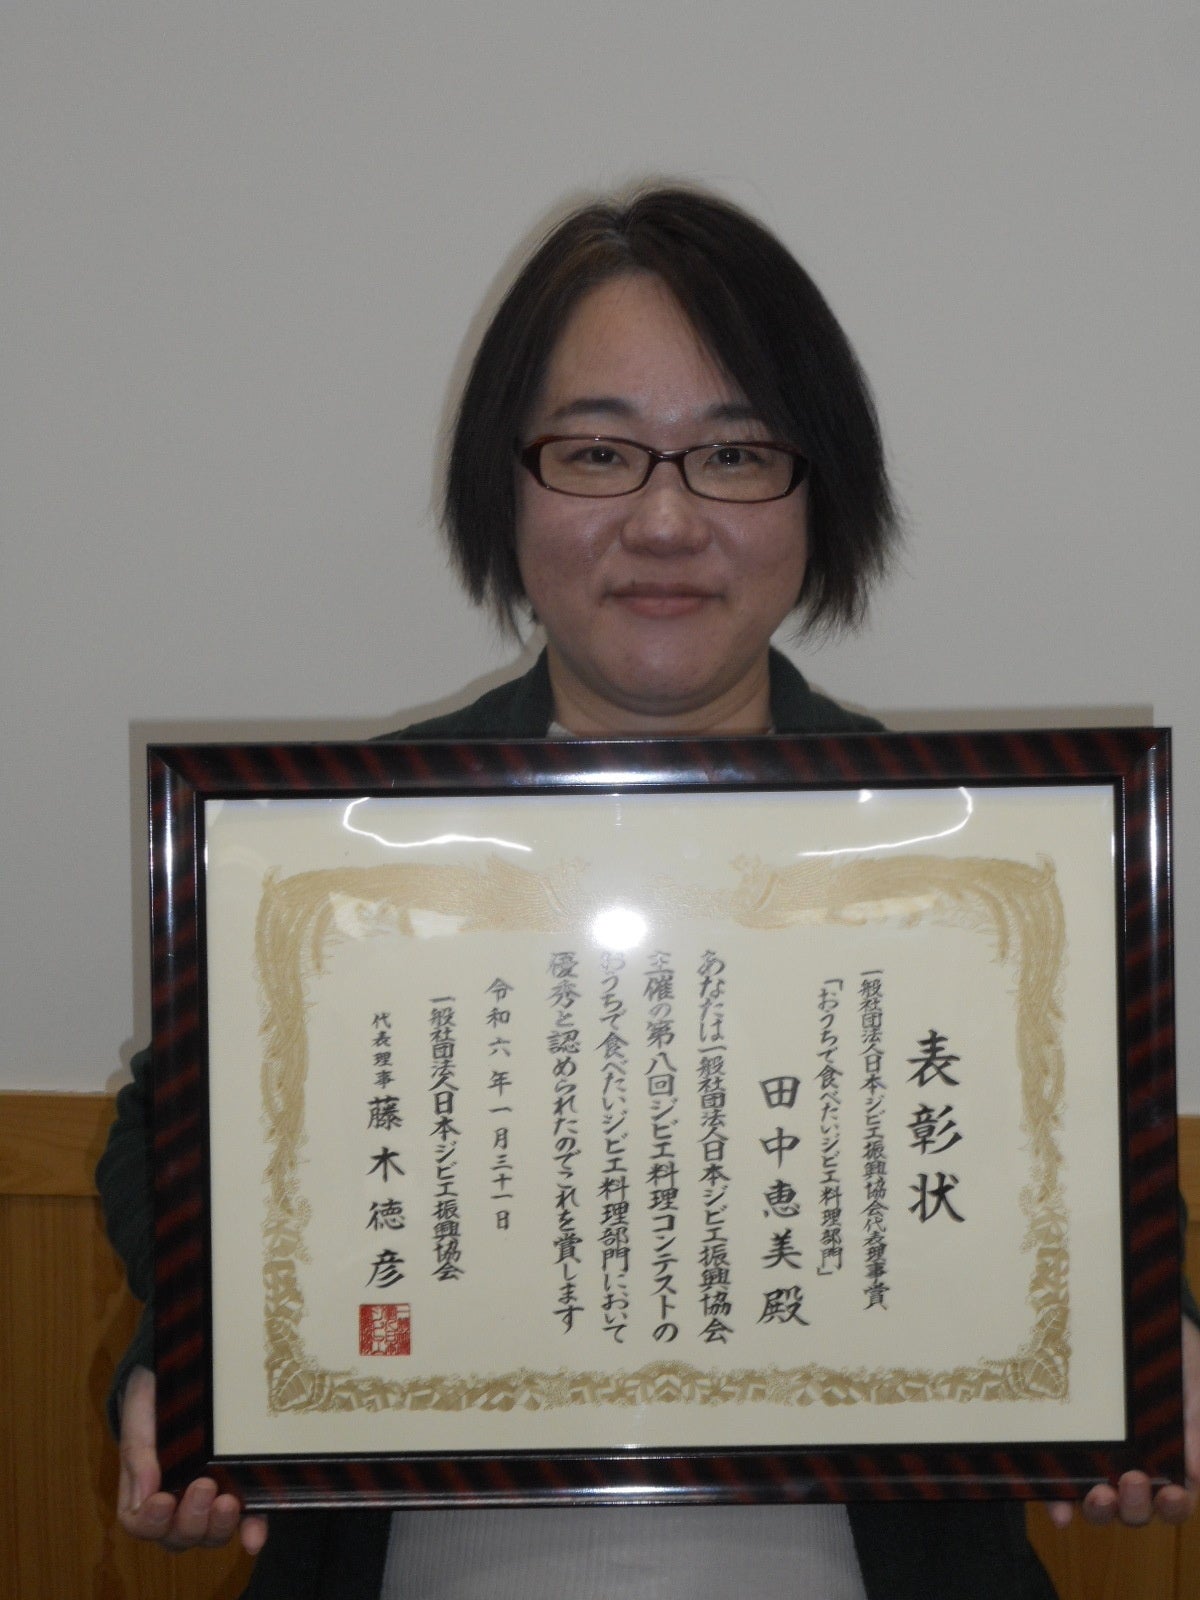 表彰状
一般社団法人日本ジビエ振興協会代表理事賞
「おうちで食べたいジビエ料理部門」
田中恵美殿
あなたは一般社団法人日本ジビエ振興協会
主催の第八回ジビエ料理コンテストの
おうちで食べたいジビエ料理部門において
優秀と認められたのでこれを賞します
令和六年一月三十一日
一般社団法人日本ジビエ振興協会
代表理事 藤木徳彦